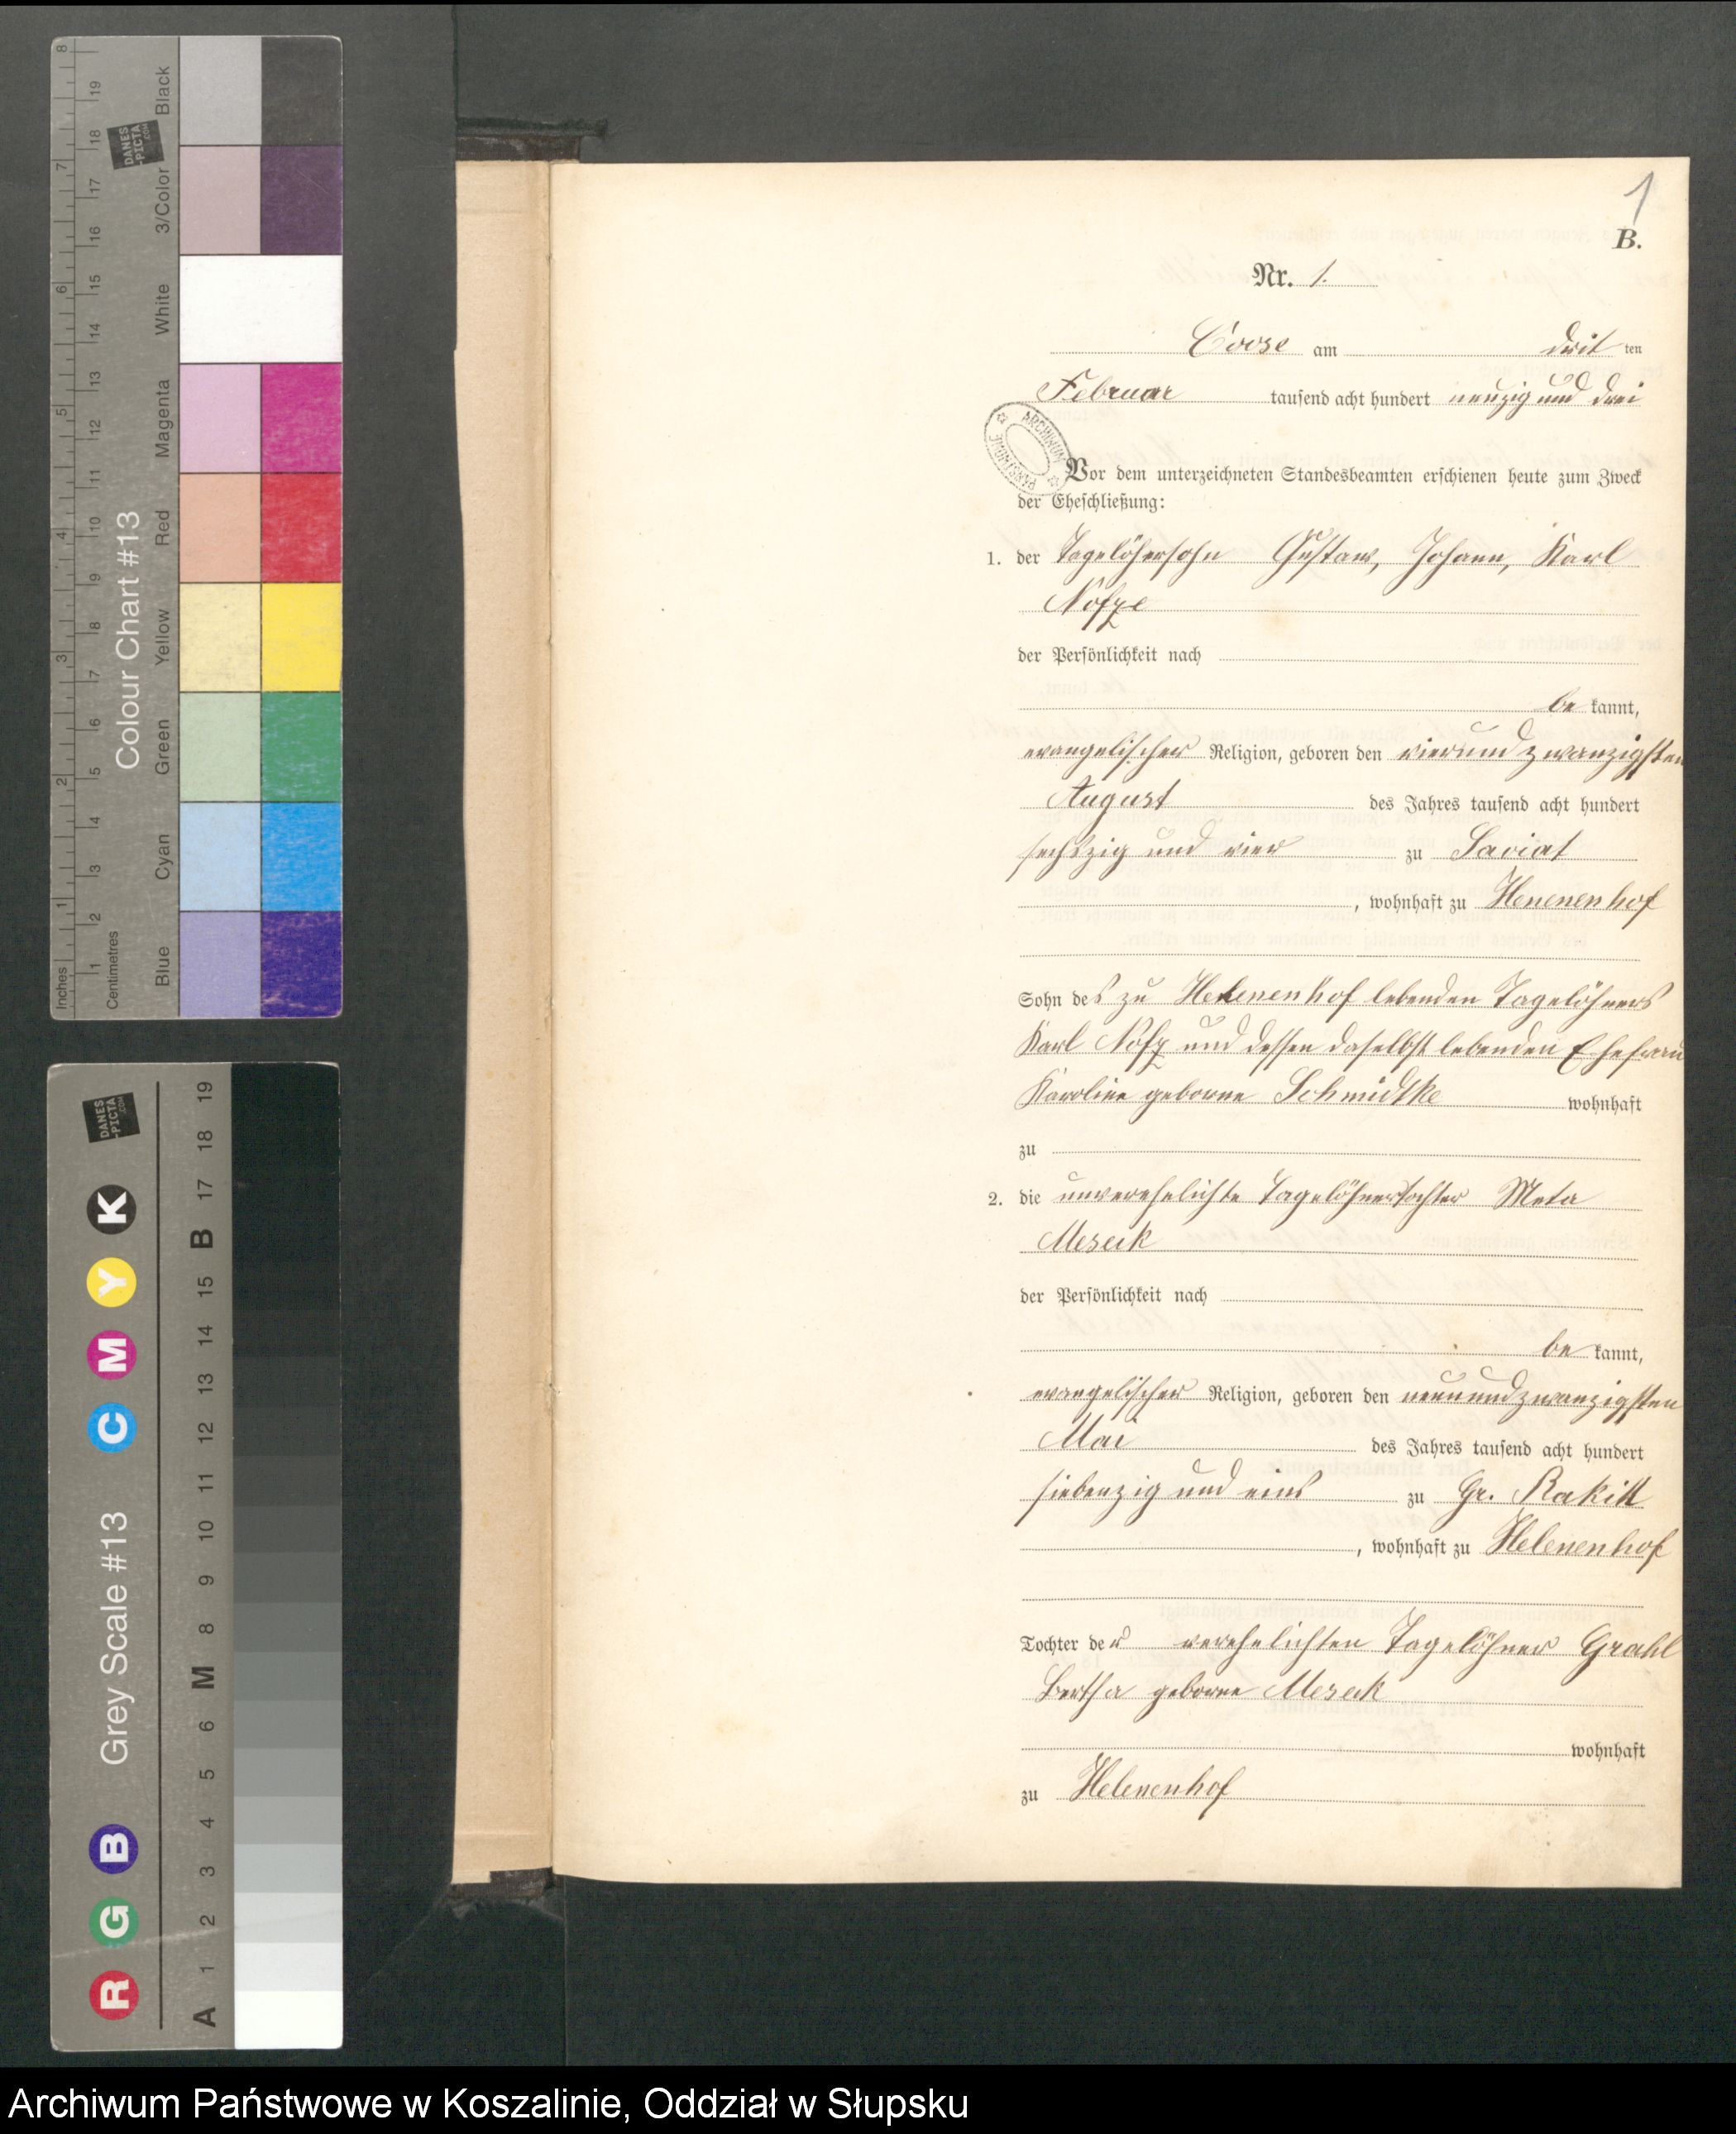 1
B.
Nr. 1.
Coose am drit ten
Februar tausend acht hundert neunzig und drei
ARCHIWUM PAŃSTWOWE
Vor dem unterzeichneten Standesbeamten erschienen heute zum Zweck
der Eheschließung:
1. der Tagelöhnersohn Gustav, Johann, Karl
Nofze
der Persönlichkeit nach
be kannt,
evangelischer Religion, geboren den vierundzwanzigsten
August des Jahres tausend acht hundert
sechszig und vier zu Saviat
, wohnhaft zu Henenenhof
Sohn des zu Helenenhof lebenden Tagelöhners
Karl Nofz und dessen daselbst lebenden Ehefrau
Karoline geborne Schmidtke wohnhaft
zu
2. die unverehelichte Tagelöhnertochter Meta
Meseck
der Persönlichkeit nach
be kannt,
evangelischer Religion, geboren den neunundzwanzigsten
Mai des Jahres tausend acht hundert
siebenzig und eins zu Gr. Rakitt
, wohnhaft zu Helenenhof
Tochter der verehelichten Tagelöhner Grahl
Bertha geborne Meseck
wohnhaft
zu Helenenhof
Colour Chart #13
Inches 1 2 3 4 5 6 7 8
Centimetres 1 2 3 4 5 6 7 8 9 10 11 12 13 14 15 16 17 18 19
Blue Cyan Green Yellow Red Magenta White 3/Color Black
DANES
-PICTA
.COM
Grey Scale #13
R G B C M Y K
DANES
-PICTA
.COM
A 1 2 3 4 5 6 M 8 9 10 11 12 13 14 15 B 17 18 19
Archiwum Państwowe w Koszalinie, Oddział w Słupsku